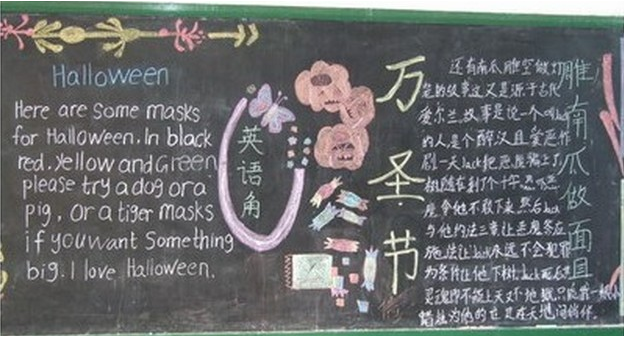 Halloween
Here are some masks
for Halloween. In black
red. yellow and Green
please try a dog or a
pig, or a tiger masks
if you want Something
big. I love Halloween.
英语角
万圣节
还有南瓜雕空做灯
笼的故事这又是源于古代
爱尔兰.故事是说一个叫
的人是个醉汉且爱恶作
剧.一天Jack把恶魔骗上了
魔令他不敢下来,然后Jack
与他约法三章让恶魔答应
施法让Jack永远不会犯罪
为条件让他下树.Jack死后
灵魂即不能上天又不地狱,只能靠一根小
蜡烛为他的在天地间徜徉.
雕南瓜做面具